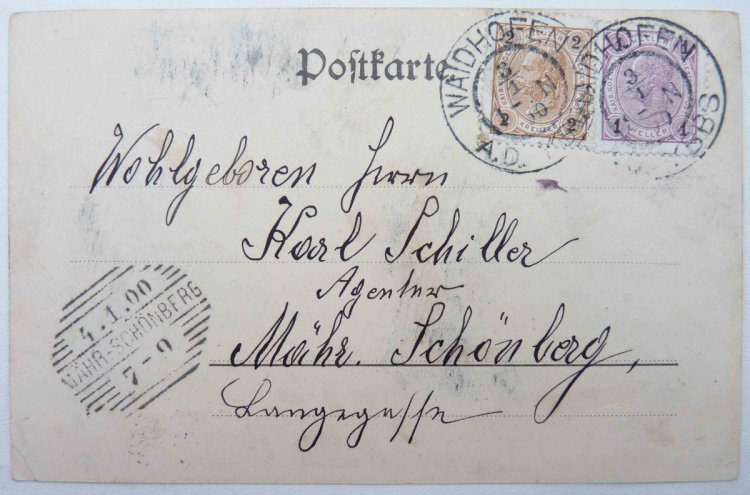 Postkarte
WAIDHOFEN
A.D. YBBS
2 2
KREUZER
2 2
WAIDHOFEN
YBBS
HELLER
1 1
Wohlgeboren Herrn
Karl Schiller
Agentur
Mähr. Schönberg,
Langegasse
4.1.00
MÄHR-SCHÖNBERG
7-9